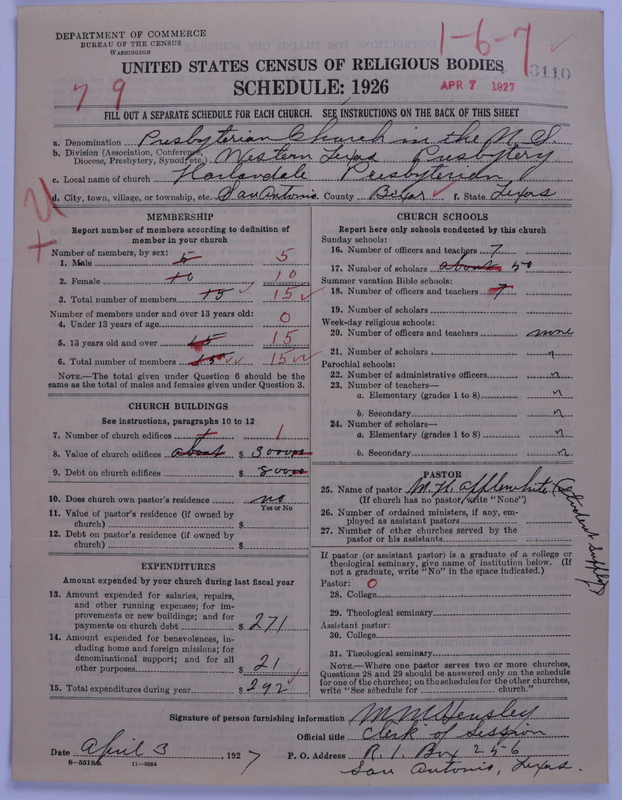 DEPARTMENT OF COMMERCE
BUREAU OF THE CENSUS
WASHINGTON
1-6-7
UNITED STATES CENSUS OF RELIGIOUS BODIES
3110
SCHEDULE: 1926
APR 7 1927
7 9
FILL OUT A SEPARATE SCHEDULE FOR EACH CHURCH. SEE INSTRUCTIONS ON THE BACK OF THIS SHEET
a. Denomination Presbyterian Church in the U.S.
b. Division (Association, Conference, Diocese, Presbytery, Synod, etc.) Western Texas Presbytery
c. Local name of church Harlandale Presbyterian
d. City, town, village, or township, etc. San Antonio County Bexar f. State Texas
MEMBERSHIP
Report number of members according to definition of
member in your church
Number of members, by sex:
1. Male 5 5
2. Female 10 10
3. Total number of members 15 15
Number of members under and over 13 years old:
4. Under 13 years of age 0
5. 13 years old and over 15 15
6. Total number of members 15 15
NOTE.—The total given under Question 6 should be the
same as the total of males and females given under Question 3.
CHURCH BUILDINGS
See instructions, paragraphs 10 to 12
7. Number of church edifices 1 1
8. Value of church edifices about $ 3000
9. Debt on church edifices $ 800
10. Does church own pastor's residence no
Yes or No
11. Value of pastor's residence (if owned by
church) $
12. Debt on pastor's residence (if owned by
church) $
EXPENDITURES
Amount expended by your church during last fiscal year
13. Amount expended for salaries, repairs,
and other running expenses; for im-
provements or new buildings; and for
payments on church debt $ 271
14. Amount expended for benevolences, in-
cluding home and foreign missions; for
denominational support; and for all
other purposes $ 21
15. Total expenditures during year $ 292
CHURCH SCHOOLS
Report here only schools conducted by this church
Sunday schools:
16. Number of officers and teachers 7
17. Number of scholars about 50
Summer vacation Bible schools:
18. Number of officers and teachers 7
19. Number of scholars
Week-day religious schools:
20. Number of officers and teachers none
21. Number of scholars "
Parochial schools:
22. Number of administrative officers "
23. Number of teachers—
a. Elementary (grades 1 to 8) "
b. Secondary "
24. Number of scholars—
a. Elementary (grades 1 to 8) "
b. Secondary "
PASTOR
25. Name of pastor M. H. Applewhite (Student Supply)
(If church has no pastor, write "None")
26. Number of ordained ministers, if any, em-
ployed as assistant pastors
27. Number of other churches served by the
pastor or his assistants
If pastor (or assistant pastor) is a graduate of a college or
theological seminary, give name of institution below. (If
not a graduate, write "No" in the space indicated.)
Pastor: 0
28. College
29. Theological seminary
Assistant pastor:
30. College
31. Theological seminary
NOTE.—Where one pastor serves two or more churches,
Questions 28 and 29 should be answered only on the schedule
for one of the churches; on the schedules for the other churches,
write "See schedule for church."
Signature of person furnishing information M M Hensley
Official title Clerk of Session
Date April 3, 1927 P. O. Address R. 1. Box 256
8-5518a 11-9664
San Antonio, Texas.